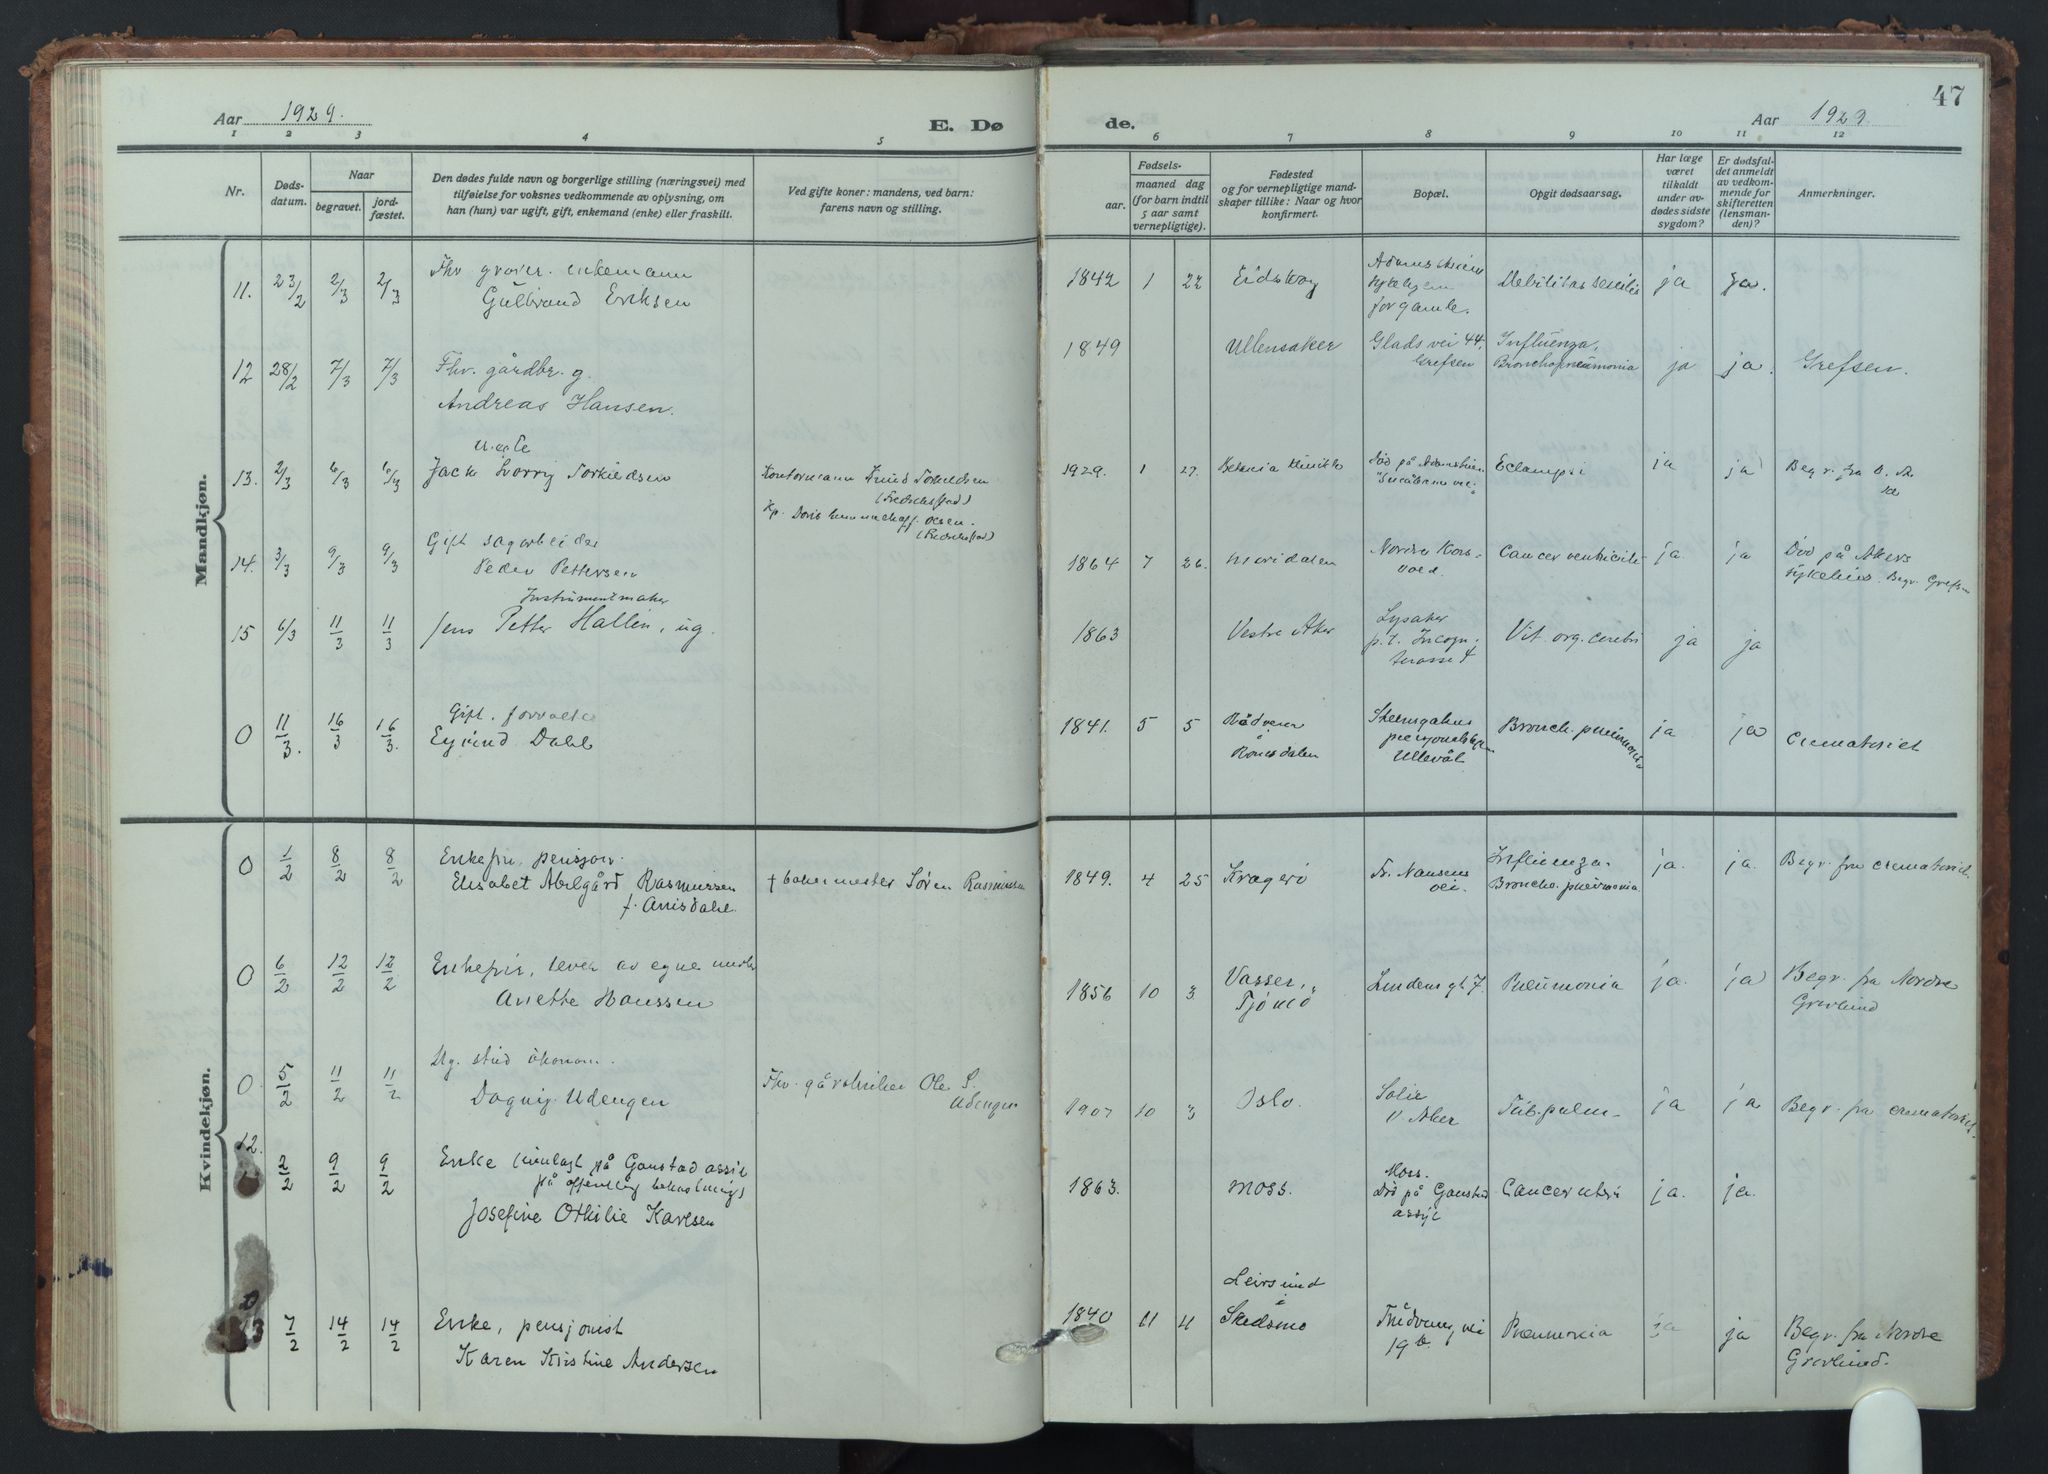 47
Aar 1929.
E. Dø
de.
Aar 1929.
1 2 3 4 5 6 7 8 9 10 11 12
Nr.
Døds-
datum.
Naar
begravet.
jord-
fæstet.
Den dødes fulde navn og borgerlige stilling (næringsvei) med
tilføielse for voksnes vedkommende av oplysning, om
han (hun) var ugift, gift, enkemand (enke) eller fraskilt.
Ved gifte koner: mandens, ved barn:
farens navn og stilling.
Fødsels-
aar.
maaned dag
(for barn indtil
5 aar samt
vernepligtige).
Fødested
og for vernepligtige mand-
skaper tillike: Naar og hvor
konfirmert.
Bopæl.
Opgit dødsaarsag.
Har læge
været
tilkaldt
under av-
dødes sidste
sygdom?
Er dødsfal-
det anmeldt
av vedkom-
mende for
skifteretten
(lensman-
den)?
Anmerkninger.
Mandkjøn.
11. 23/2 2/3 2/3 Fhv graver. enkemann
Gulbrand Eriksen
1842 1 22 Eidsvog
for gamle.
Debilitas senilis ja ja.
12 28/2 7/3 7/3 Fhv. gårdbr. g.
Andreas Hansen.
1849 Ullensaker Glads vei 44,
Grefsen
Influenza,
Bronchopneumonia ja ja. Grefsen.
13. 2/3 6/3 6/3 u. egte
Jack Torkildsen
Kontormann Knud Torkeldsen
(Fredrikstad)
Kp. Doris Olsen.
(Fredrikstad)
1929. 1 27. Betania Død på
Eclampsi ja ja Begr. fra
14. 3/3 9/3 9/3 Gift sagarbeider
Peder Pettersen
1864 7 26. Maridalen Nordre Kors-
voll.
Cancer ventriculi ja ja Død på Akers
sykehus. Begr. Grefsen
15 6/3 11/3 11/3 Instrumentmaker
Jens Petter Hallén, ug.
1863 Vestre Aker Lysaker
p.t. Incogn.
terasse 4
Vit. org. cerebri ja ja
0 11/3. 16/3 16/3. Gift. forvalter
Eyvind Dahl
1841. 5 5 Rødven
i
Romsdalen
Ullevål
Bronch. pneumonia ja ja Crematoriet
Kvindekjøn.
0 1/2 8/2 8/2 Enkefru, pensjon.
Elisabet Abelgård Rasmussen
f. Arnsdahl.
† bakermester Søren Rasmussen
1849. 4 25 Kragerø Fr. Nansens
vei.
Influenza.
Broncho. pneumonia. ja. ja. Begr. fra crematoriet.
0 6/2 12/2 12/2 Enkefru, lever av egne midler
Anette Hanssen
1856 10 3 Vasser,
Tjømø
Lindens gt 7. Pneumonia ja. ja Begr. fra Nordre
Gravlund
0 5/2 11/2 11/2 Ug. stud økonom.
Dagny Udengen
Fhv. gårdbruker Ole S.
Udengen
1907 10 3 Oslo. Solli
V Aker
Tub. pulm. ja ja Begr. fra crematoriet.
12. 2/2 9/2 9/2 Enke (innlagt på Gaustad asyl
på offentlig bekostning)
Josefine Othilie Karlsen
1863. Moss. Moss.
Død på Gaustad
asyl
Cancer uteri ja. ja.
13 7/2 14/2 14/2 Enke, pensjonist
Karen Kristine Andersen
1840 11 4 Leirsund
i
Skedsmo
Trudvang vei
19 b.
Pneumonia ja ja Begr. fra Nordre
Gravlund.